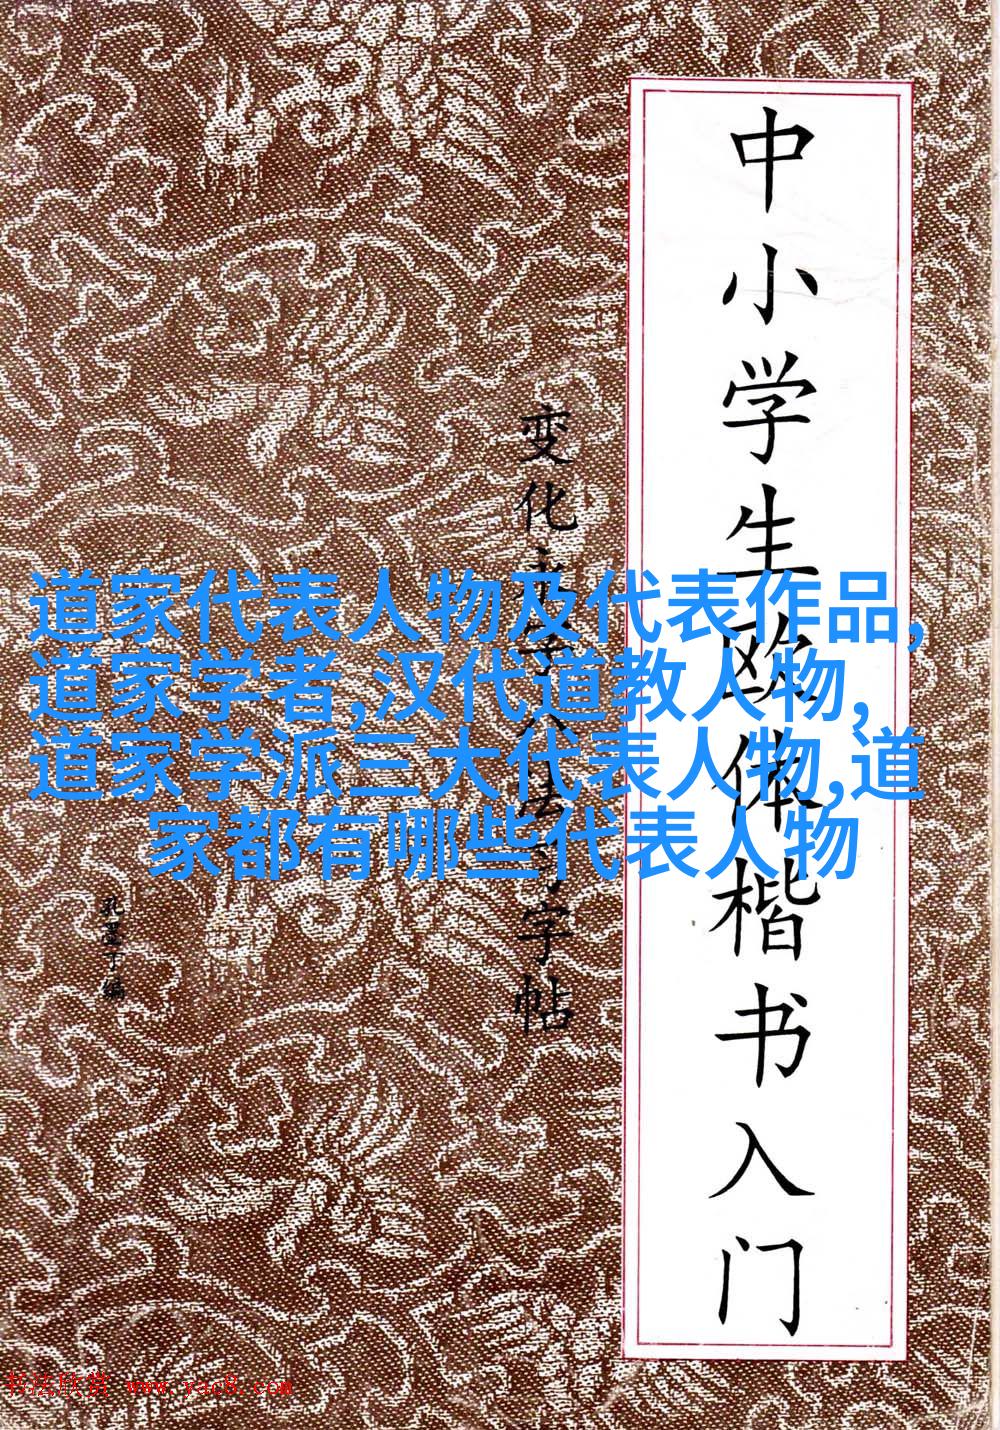 中小学生欧体楷书入门
变化永字八法习字帖
孔墨丁编
道家代表人物及代表作品,
道家学者,汉代道教人物,
道家学派三大代表人物,道
家都有哪些代表人物
书法欣赏 www.yac8.com